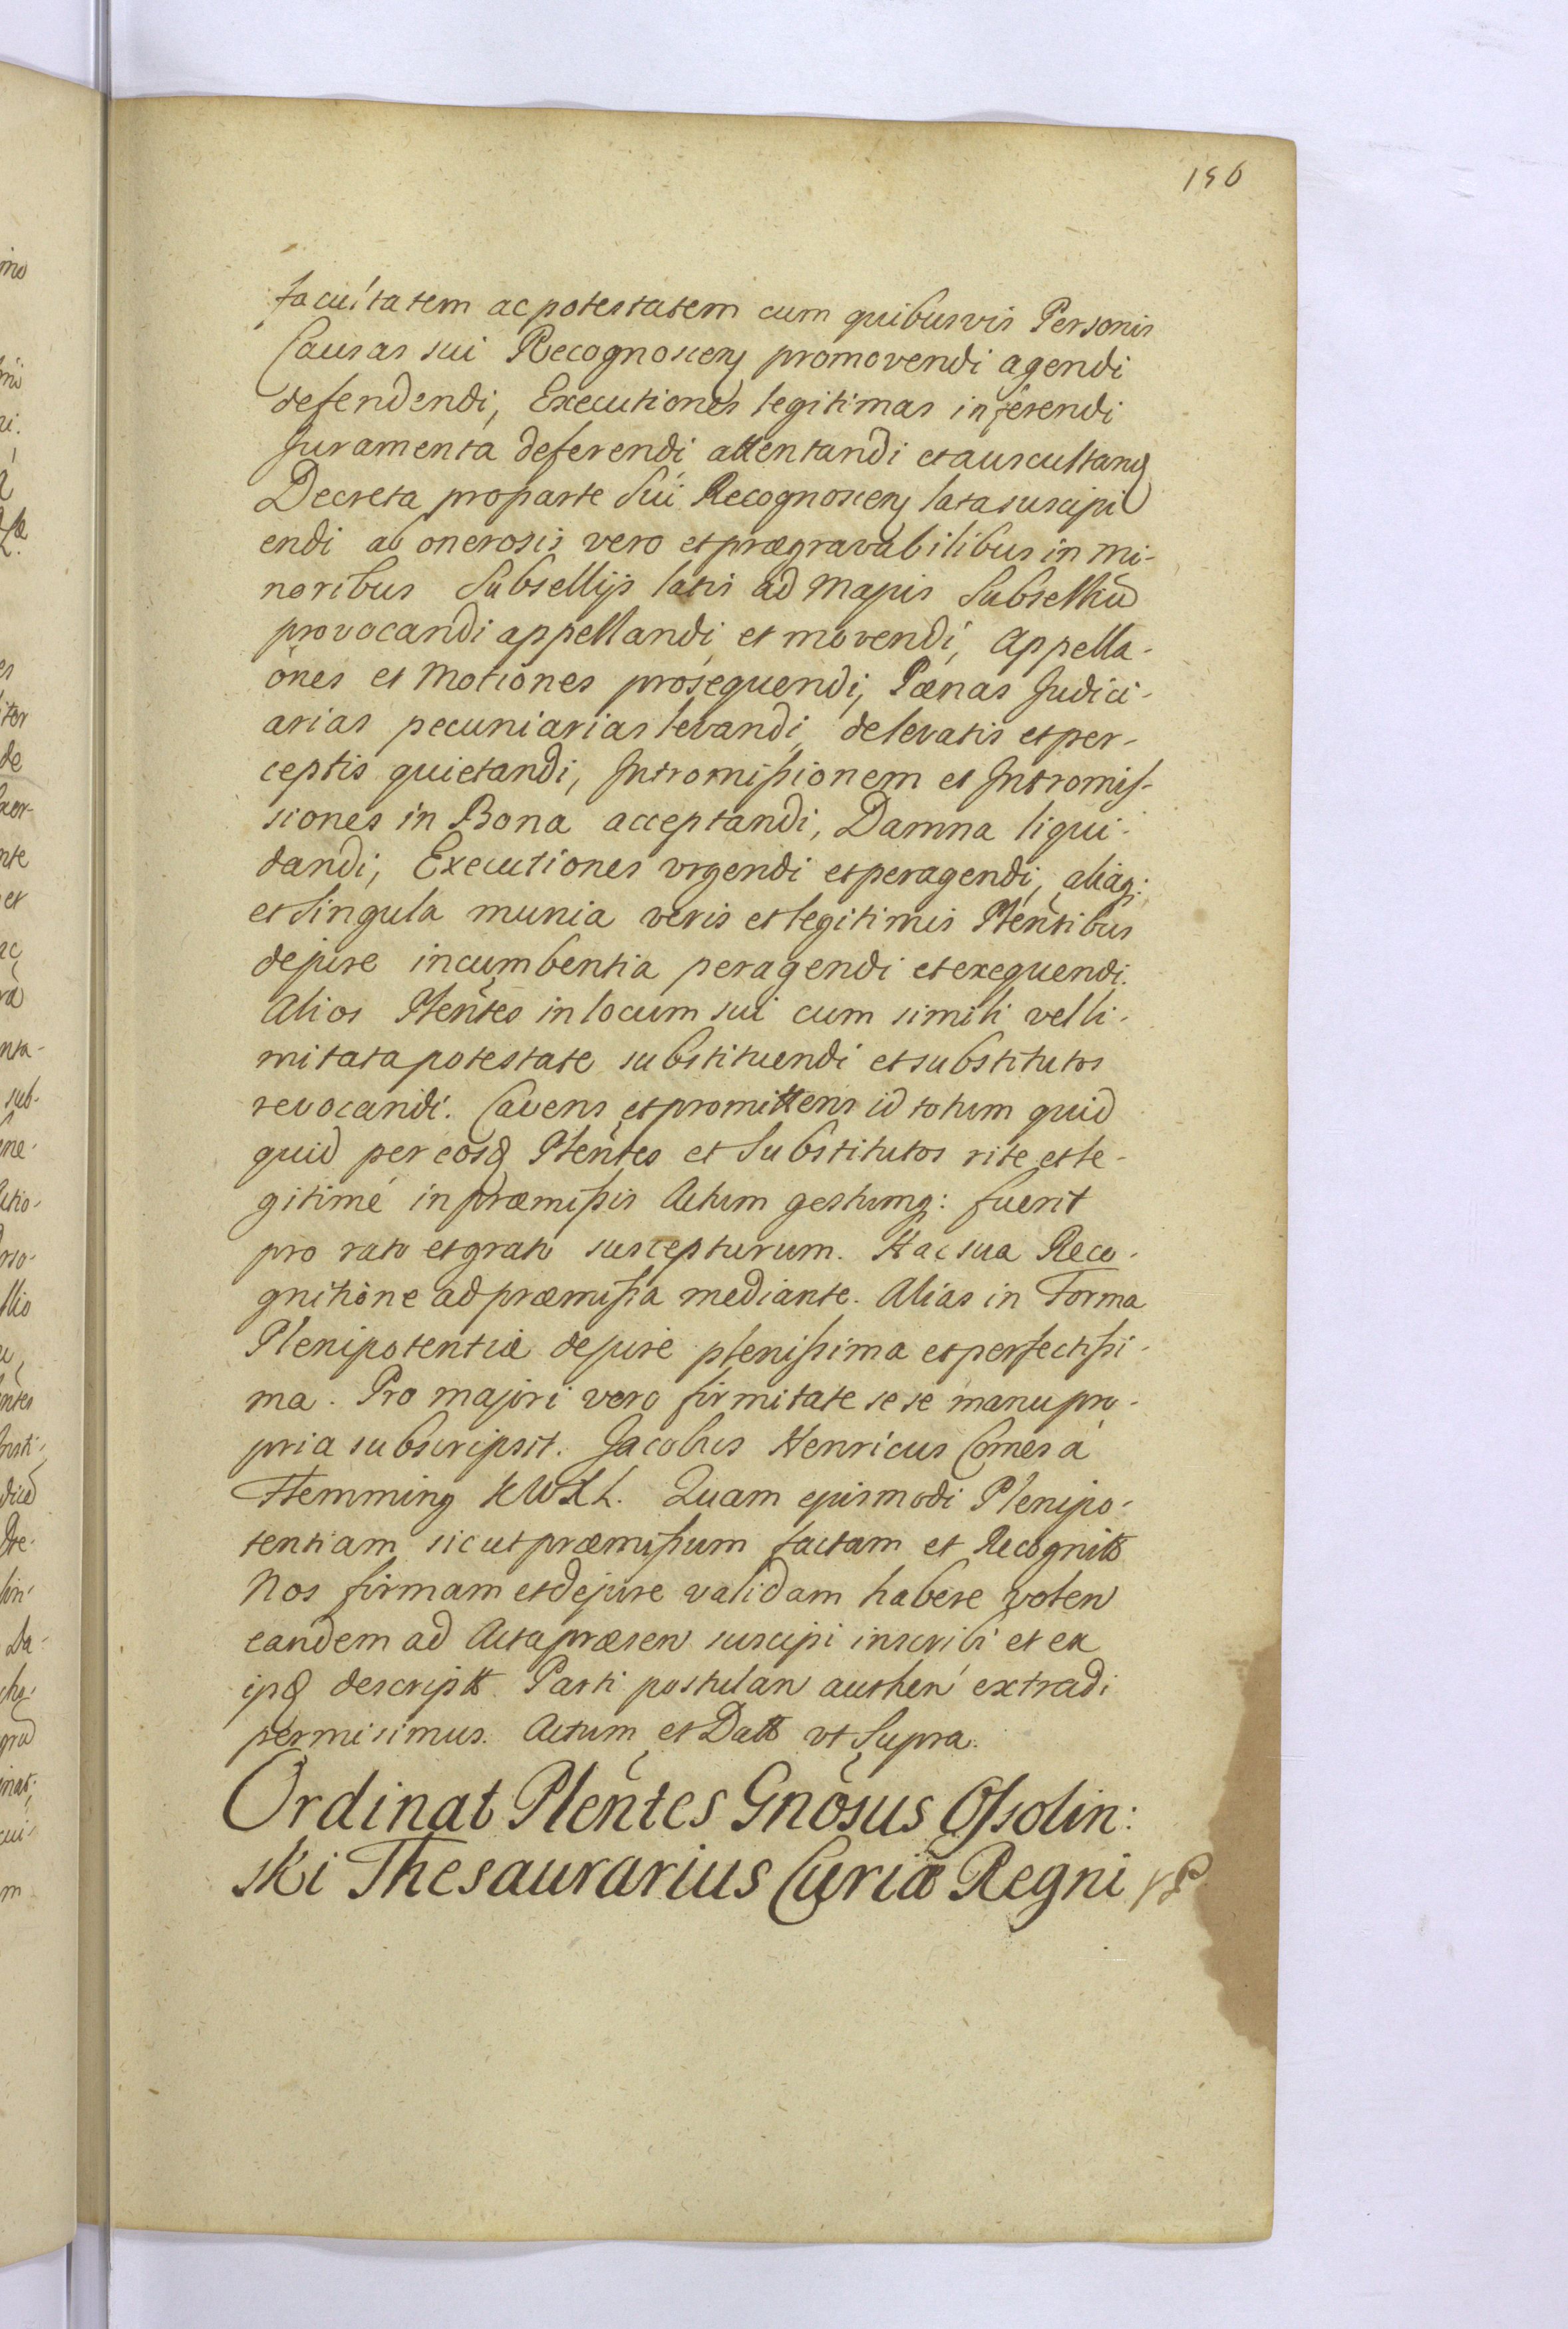 156
facultatem ac potestatem cum quibusvis Personis
Causas sui Recognoscen promovendi agendi
defendendi, Executiones legitimas inferendi
Juramenta deferendi attentandi et auscultand
Decreta pro parte Sui Recognoscen lata suscipi
endi ab onerosis vero et prægravabilibus in mi-
noribus Subsellijs latis ad Majus Subselliũ
provocandi appellandi et movendi, Appella-
õnes et Motiones prosequendi, Pænas Judici-
arias pecuniarias levandi, de levatis et per-
ceptis quietandi, Intromißionem et Intromis-
siones in Bona acceptandi, Damna liqui-
dandi, Executiones urgendi et peragendi, aliaq;
et Singula munia veris et legitimis Plentibus
de jure incumbentia peragendi et exequendi.
Alios Plentes in locum sui cum simili vel li-
mitata potestate substituendi et substitutos
revocandi. Cavens et promittens id totum quid
quid per eosd Plentes et Substitutos rite et le-
gitimé in præmißis Actum gestumq: fuerit
pro rato et grato suscepturum. Hac sua Reco-
gnitione ad præmißa mediante. Alias in Forma
Plenipotentiæ de jure plenißima et perfectißi-
ma. Pro majori vero firmitate se se manu pro-
pria subscripsit. Jacobus Henricus Comes á
Flemming KWXL. Quam ejusmodi Plenipo-
tentiam sic ut præmißum factam et Recognitã
Nos firmam et de jure validam habere volen
eandem ad Acta præsen suscipi inscribi et ex
ijsd descriptã Parti postulan authen extradi
permisimus. Actum et Datt ut Supra.
Ordinat Plentes Gnõsus Ossolin:
ski Thesaurarius Curiæ Regni